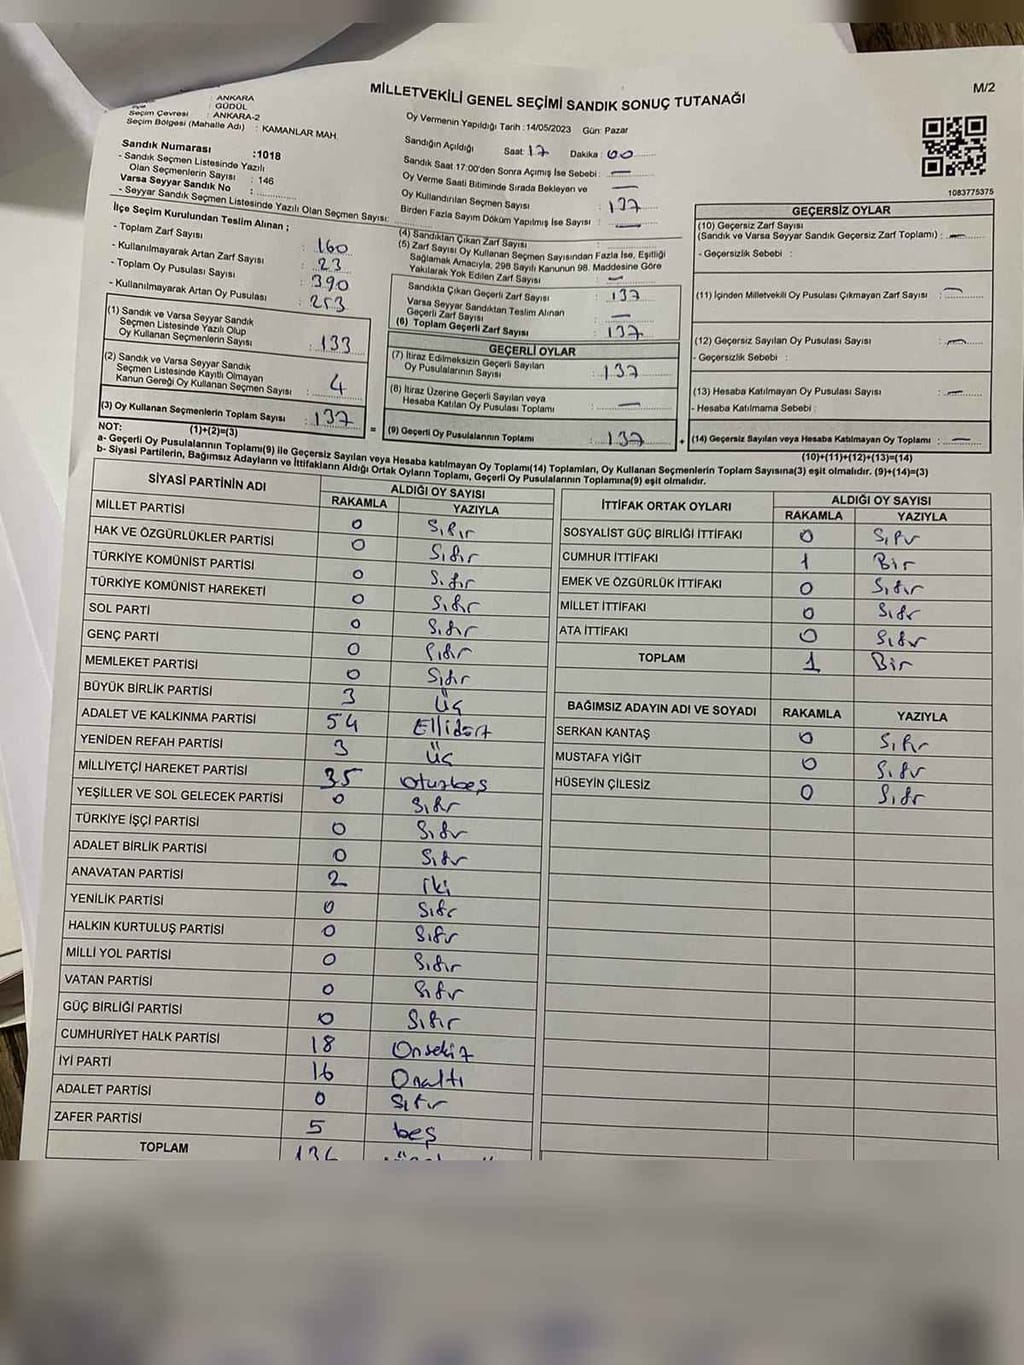 MİLLETVEKİLİ GENEL SEÇİMİ SANDIK SONUÇ TUTANAĞI
M/2
: ANKARA
: GÜDÜL
Seçim Çevresi : ANKARA-2
Seçim Bölgesi (Mahalle Adı) : KAMANLAR MAH.
Sandık Numarası :1018
- Sandık Seçmen Listesinde Yazılı
Olan Seçmenlerin Sayısı : 146
Varsa Seyyar Sandık No :
- Seyyar Sandık Seçmen Listesinde Yazılı Olan Seçmen Sayısı:
Oy Vermenin Yapıldığı Tarih : 14/05/2023 Gün: Pazar
Sandığın Açıldığı Saat: 17 Dakika : 00
Sandık Saat 17:00'den Sonra Açımış İse Sebebi : —
Oy Verme Saati Bitiminde Sırada Bekleyen ve —
Oy Kullandırılan Seçmen Sayısı : 137
Birden Fazla Sayım Döküm Yapılmış İse Sayısı : —
1083775375
İlçe Seçim Kurulundan Teslim Alınan ;
- Toplam Zarf Sayısı : 160
- Kullanılmayarak Artan Zarf Sayısı : 23
- Toplam Oy Pusulası Sayısı : 390
- Kullanılmayarak Artan Oy Pusulası : 253
(1) Sandık ve Varsa Seyyar Sandık
Seçmen Listesinde Yazılı Olup
Oy Kullanan Seçmenlerin Sayısı : 133
(2) Sandık ve Varsa Seyyar Sandık
Seçmen Listesinde Kayıtlı Olmayan
Kanun Gereği Oy Kullanan Seçmen Sayısı : 4
(3) Oy Kullanan Seçmenlerin Toplam Sayısı : 137
(1)+(2)=(3)
(4) Sandıktan Çıkan Zarf Sayısı :
(5) Zarf Sayısı Oy Kullanan Seçmen Sayısından Fazla İse, Eşitliği
Sağlamak Amacıyla, 298 Sayılı Kanunun 98. Maddesine Göre
Yakılarak Yok Edilen Zarf Sayısı : —
Sandıkta Çıkan Geçerli Zarf Sayısı : 137
Varsa Seyyar Sandıktan Teslim Alınan
Geçerli Zarf Sayısı : —
(6) Toplam Geçerli Zarf Sayısı : 137
GEÇERLİ OYLAR
(7) İtiraz Edilmeksizin Geçerli Sayılan
Oy Pusulalarının Sayısı : 137
(8) İtiraz Üzerine Geçerli Sayılan veya
Hesaba Katılan Oy Pusulası Toplamı : —
= (9) Geçerli Oy Pusulalarının Toplamı : 137 +
GEÇERSİZ OYLAR
(10) Geçersiz Zarf Sayısı
(Sandık ve Varsa Seyyar Sandık Geçersiz Zarf Toplamı) : —
- Geçersizlik Sebebi :
(11) İçinden Milletvekili Oy Pusulası Çıkmayan Zarf Sayısı : —
(12) Geçersiz Sayılan Oy Pusulası Sayısı : —
- Geçersizlik Sebebi :
(13) Hesaba Katılmayan Oy Pusulası Sayısı : —
- Hesaba Katılmama Sebebi :
(14) Geçersiz Sayılan veya Hesaba Katılmayan Oy Toplamı : —
(10)+(11)+(12)+(13)=(14)
NOT:
a- Geçerli Oy Pusulalarının Toplamı(9) ile Geçersiz Sayılan veya Hesaba katılmayan Oy Toplamı(14) Toplamları, Oy Kullanan Seçmenlerin Toplam Sayısına(3) eşit olmalıdır. (9)+(14)=(3)
b- Siyasi Partilerin, Bağımsız Adayların ve İttifakların Aldığı Ortak Oyların Toplamı, Geçerli Oy Pusulalarının Toplamına(9) eşit olmalıdır.
SİYASİ PARTİNİN ADI ALDIĞI OY SAYISI
RAKAMLA YAZIYLA
MİLLET PARTİSİ 0 Sıfır
HAK VE ÖZGÜRLÜKLER PARTİSİ 0 Sıfır
TÜRKİYE KOMÜNİST PARTİSİ 0 Sıfır
TÜRKİYE KOMÜNİST HAREKETİ 0 Sıfır
SOL PARTİ 0 Sıfır
GENÇ PARTİ 0 Sıfır
MEMLEKET PARTİSİ 0 Sıfır
BÜYÜK BİRLİK PARTİSİ 3 Üç
ADALET VE KALKINMA PARTİSİ 54 Ellidört
YENİDEN REFAH PARTİSİ 3 Üç
MİLLİYETÇİ HAREKET PARTİSİ 35 otuzbeş
YEŞİLLER VE SOL GELECEK PARTİSİ 0 Sıfır
TÜRKİYE İŞÇİ PARTİSİ 0 Sıfır
ADALET BİRLİK PARTİSİ 0 Sıfır
ANAVATAN PARTİSİ 2 iki
YENİLİK PARTİSİ 0 Sıfır
HALKIN KURTULUŞ PARTİSİ 0 Sıfır
MİLLİ YOL PARTİSİ 0 Sıfır
VATAN PARTİSİ 0 Sıfır
GÜÇ BİRLİĞİ PARTİSİ 0 Sıfır
CUMHURİYET HALK PARTİSİ 18 Onsekiz
İYİ PARTİ 16 Onaltı
ADALET PARTİSİ 0 Sıfır
ZAFER PARTİSİ 5 beş
TOPLAM 136
İTTİFAK ORTAK OYLARI ALDIĞI OY SAYISI
RAKAMLA YAZIYLA
SOSYALİST GÜÇ BİRLİĞİ İTTİFAKI 0 Sıfır
CUMHUR İTTİFAKI 1 Bir
EMEK VE ÖZGÜRLÜK İTTİFAKI 0 Sıfır
MİLLET İTTİFAKI 0 Sıfır
ATA İTTİFAKI 0 Sıfır
TOPLAM 1 Bir
BAĞIMSIZ ADAYIN ADI VE SOYADI RAKAMLA YAZIYLA
SERKAN KANTAŞ 0 Sıfır
MUSTAFA YİĞİT 0 Sıfır
HÜSEYİN ÇİLESİZ 0 Sıfır